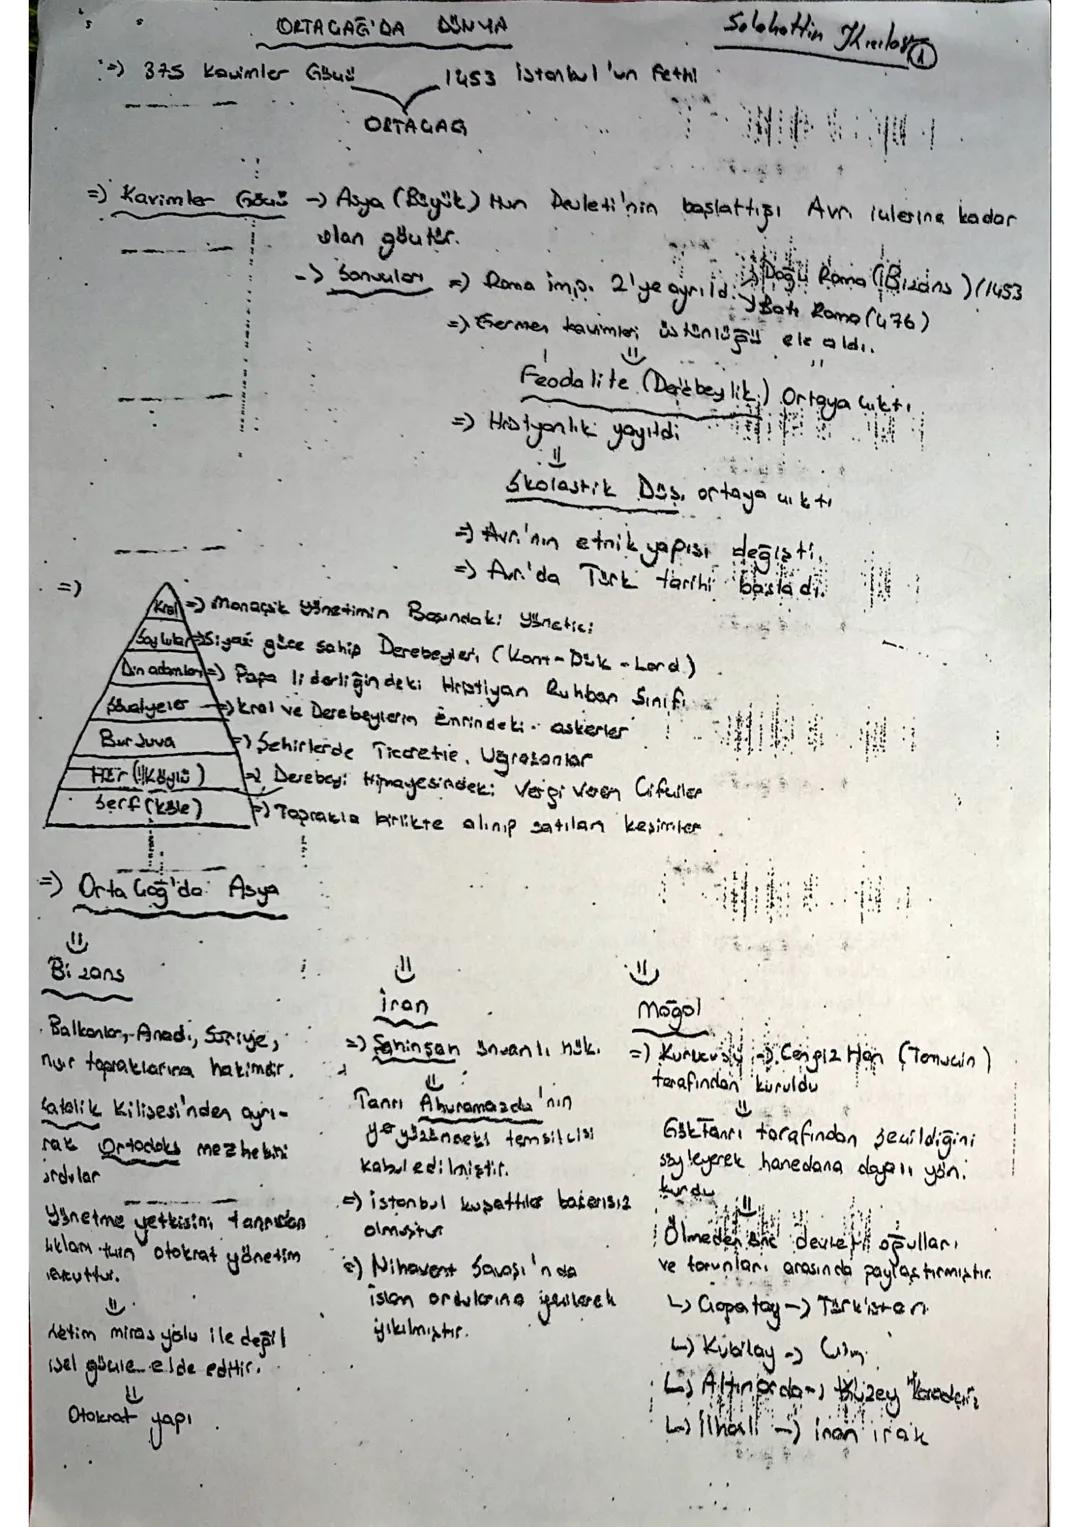 ORTAÇAĞ'DA DÜNYA
Selahattin ①
=) 375 Kavimler Göçü 1453 İstanbul'un Fethi
ORTAÇAĞ
=) Kavimler Göçü -> Asya (Büyük) Hun Devleti'nin başlattığı Avr. içlerine kadar
olan göçtür.
-> Sonuçları => Roma imp. 2'ye ayrıldı. -> Doğu Roma (Bizans) (1453
-> Batı Roma (476)
=> Germen kavimleri üstünlüğü ele aldı.
Feodalite (Derebeylik) Ortaya çıktı.
=> Hristyanlık yayıldı
Skolastik Düş. ortaya çıktı
=> Avr.'nın etnik yapısı değişti.
=> Avr.'da Türk tarihi başladı.
=)
Kral => Monarşik yönetimin Başındaki yönetici
Soylular => Siyasi güce sahip Derebeyleri (Kont - Dük - Lord)
Din adamları => Papa liderliğindeki Hristiyan Ruhban Sınıfı
Şövalyeler => kral ve Derebeylerin Emrindeki askerler
Burjuva => Şehirlerde Ticaretle Uğraşanlar
Hür (Köylü) => Derebeyi Himayesindeki Vergi Veren Çiftçiler
Serf (köle) => Toprakla birlikte alınıp satılan kesimler
=) Orta Çağ'da Asya
Bizans
Balkanlar, Anad., Suriye,
topraklarına hakimdir.
Katolik Kilisesi'nden ayrı-
rak Ortodoks mezhebini
Yönetme yetkisini tanrıdan
otokrat yönetim
miras yolu ile değil
güçle elde edilir.
Otokrat yapı
İran
=> Şahinşah ünvanlı hük.
Tanrı Ahuramazda'nın
yeryüzündeki temsilcisi
kabul edilmiştir.
=> İstanbul kuşattılar başarısız
olmuştur
=> Nihavent Savaşı'nda
islam ordularına yenilerek
yıkılmıştır.
Moğol
=> Kurucusu -> Cengiz Han (Temuçin)
tarafından kuruldu
GökTanrı tarafından seçildiğini
söyleyerek hanedana dayalı yön.
kurdu
Ölmeden önc devleti oğulları
ve torunları arasında paylaştırmıştır.
↳ Çagatay -> Türkistan
↳ Kubilay -> Çin
↳ Altınorda -> Kuzey Karadeniz
↳ İlhanlı -> İran ırak